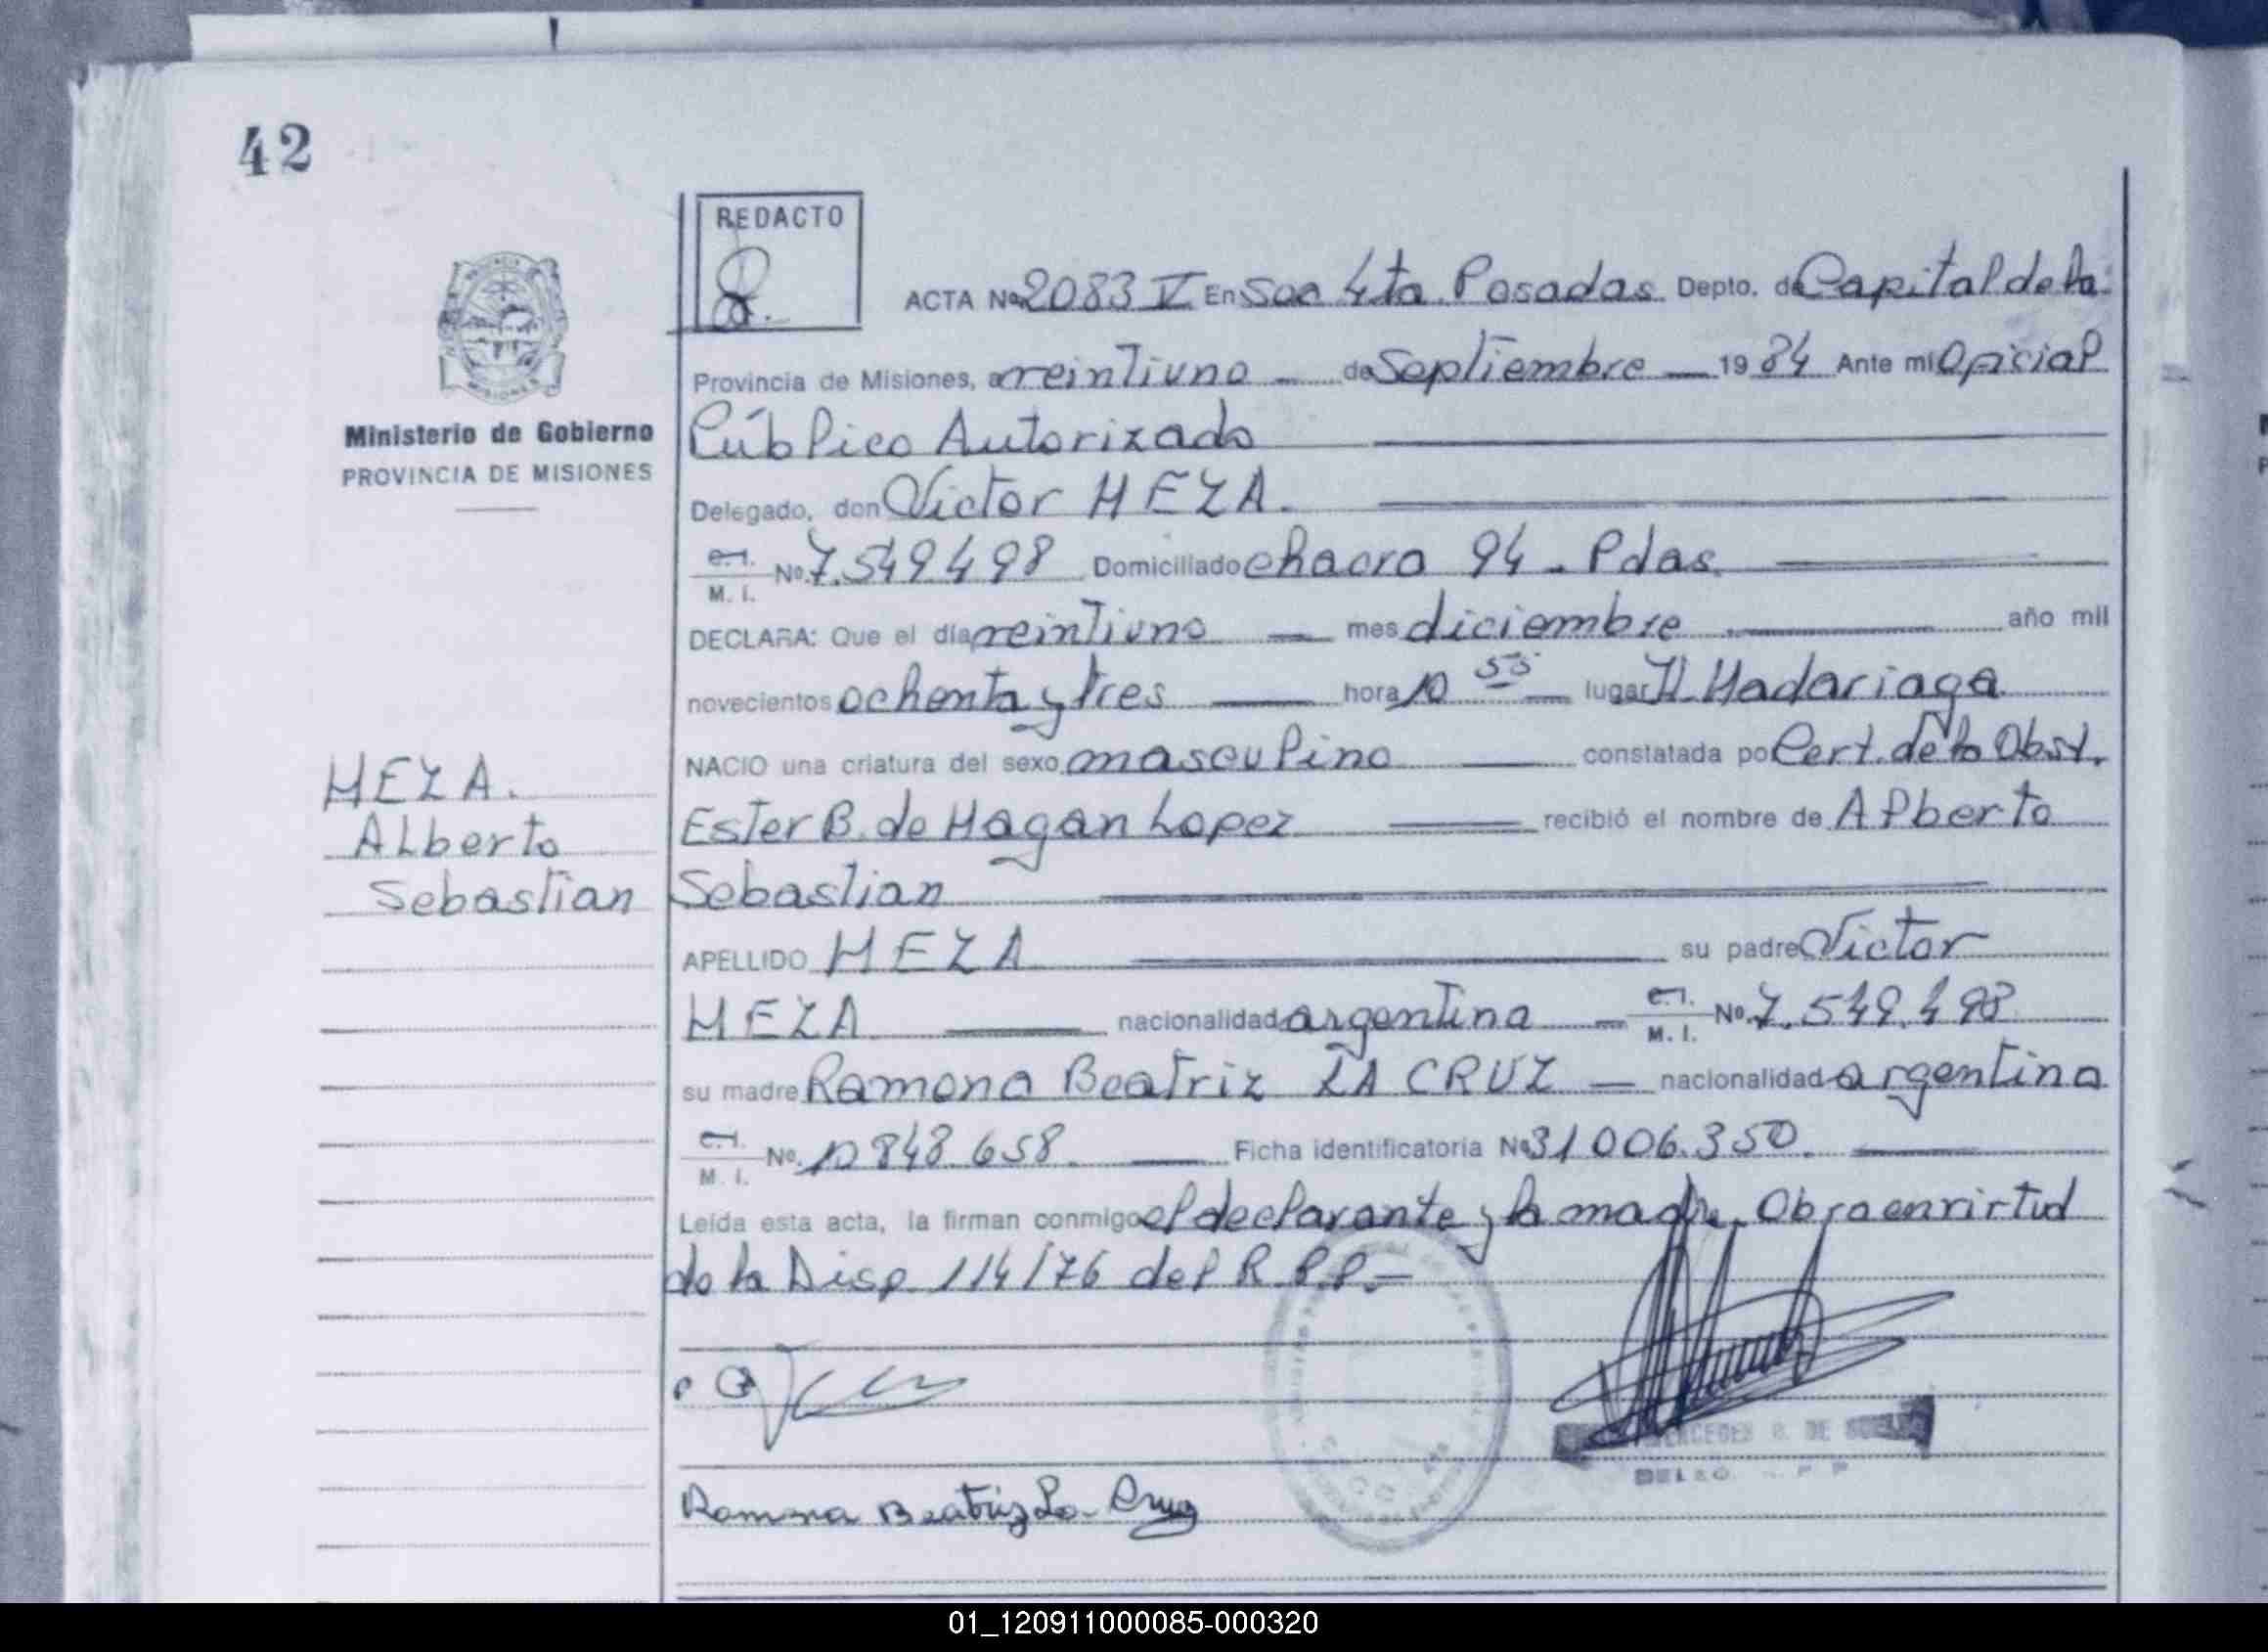 42
REDACTO
ACTA Nº 2083 V En Sec 4ta Posadas Depto. de Capital de la
Provincia de Misiones, a veintiuno de Septiembre 1984 Ante mi Oficial
Público Autorizado
Ministerio de Gobierno
PROVINCIA DE MISIONES
Delegado, don Victor MEZA.
C.I. M. I. Nº 7.549.498 Domiciliado chacra 94 - Pdas.
DECLARA: Que el día veintiuno mes diciembre año mil
novecientos ochenta y tres hora 10 55 lugar H. Madariaga
NACIO una criatura del sexo masculino constatada po Cert. de la Obst.
Ester B. de Magan Lopez recibió el nombre de Alberto
Sebastian
MEZA.
Alberto
Sebastian
APELLIDO MEZA su padre Victor
MEZA nacionalidad argentina C.I. M. I. Nº 7.549.498
su madre Ramona Beatriz LA CRUZ nacionalidad argentina
C.I. M. I. Nº 10848.658. Ficha identificatoria Nº 31006.350.
Leída esta acta, la firman conmigo el declarante y la madre. Obra en virtud
de la Disp. 114/76 del R.P.P.-
DE
Ramona Beatriz La Cruz
01_120911000085-000320